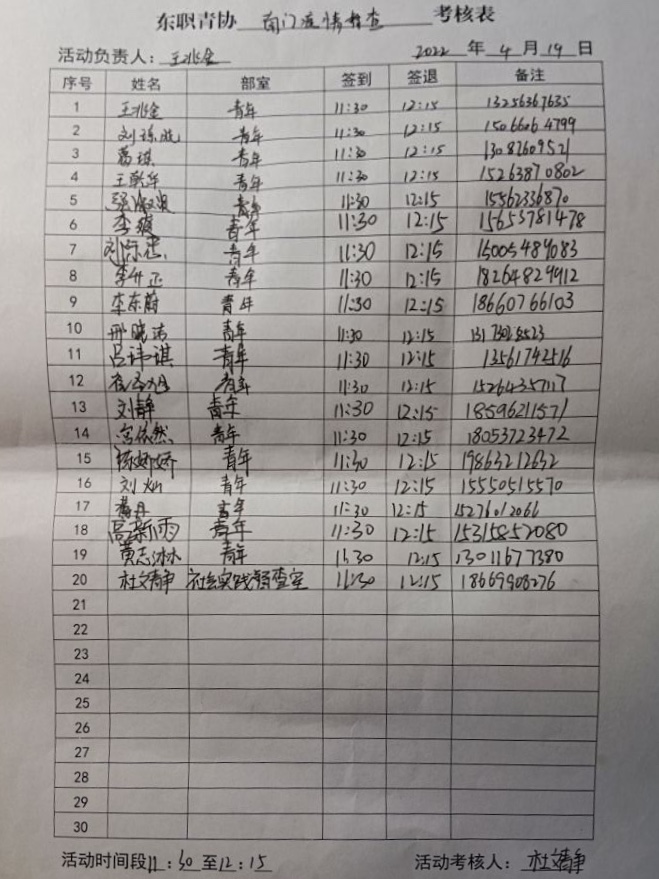 东职青协 南门疫情督查 考核表
活动负责人：王兆金 2022 年 4 月 19 日
序号 姓名 部室 签到 签退 备注
1 王兆金 青年 11:30 12:15 13256367635
2 刘 青年 11:30 12:15 15066064799
3 葛琪 青年 11:30 12:15 13087609521
4 王 青年 11:30 12:15 15263870802
5 张 青年 11:30 12:15 15562336870
6 李璇 青年 11:30 12:15 15653781478
7 刘 青年 11:30 12:15 15005489083
8 李升正 青年 11:30 12:15 18264829912
9 李东蔚 青年 11:30 12:15 18660766103
10 邢晓洁 青年 11:30 12:15
11 吕玮琪 青年 11:30 12:15 13561742516
12 青年 11:30 12:15 15264357117
13 刘静 青年 11:30 12:15 18596211571
14 宫依然 青年 11:30 12:15 18053723472
15 娇娇 青年 11:30 12:15 19863212632
16 刘灿 青年 11:30 12:15 15550515570
17 丹 青年 11:30 12:15 15276012066
18 高新雨 青年 11:30 12:15 15315852080
19 黄志冰 青年 11:30 12:15 13011677380
20 杜文静 社会实践督查室 11:30 12:15 18669908276
21
22
23
24
25
26
27
28
29
30
活动时间段11：30 至12：15 活动考核人：杜文静